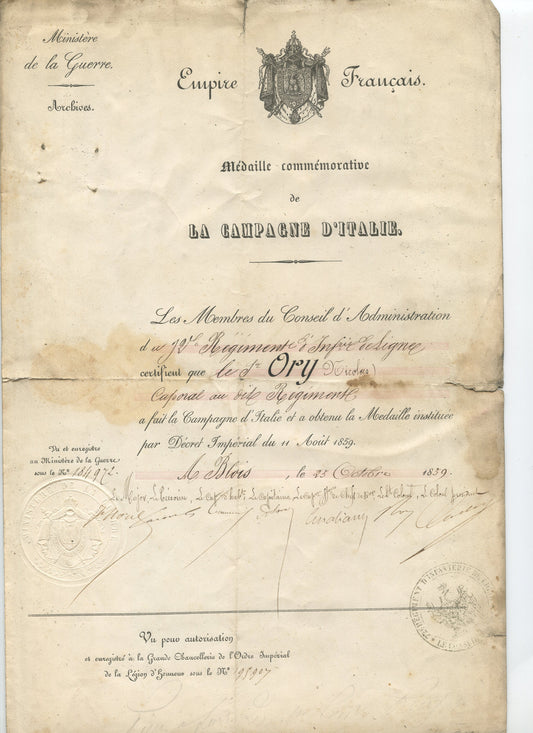 Ministère
de la Guerre.
Archives.
Empire Français.
Médaille commémorative
de
LA CAMPAGNE D'ITALIE.
Les Membres du Conseil d'Administration
du 72e Régiment d'Infie de Ligne
certifient que le Sr Ory (Nicolas)
Caporal au dit Régiment
a fait la Campagne d'Italie et a obtenu la Médaille instituée
par Décret Impérial du 11 Août 1859.
A Blois, le 25 Octobre 1859.
Vu et enregistré
au Ministère de la Guerre
sous le No 184972.
Le Major, Le Trésorier, Le Capne Le Capitaine, Le Lt Colonel, Le Colonel président
72e RÉGIMENT D'INFANTERIE DE LIGNE
Vu pour autorisation
et enregistré à la Grande Chancellerie de l'Ordre Impérial
de la Légion d'Honneur sous le No 195907